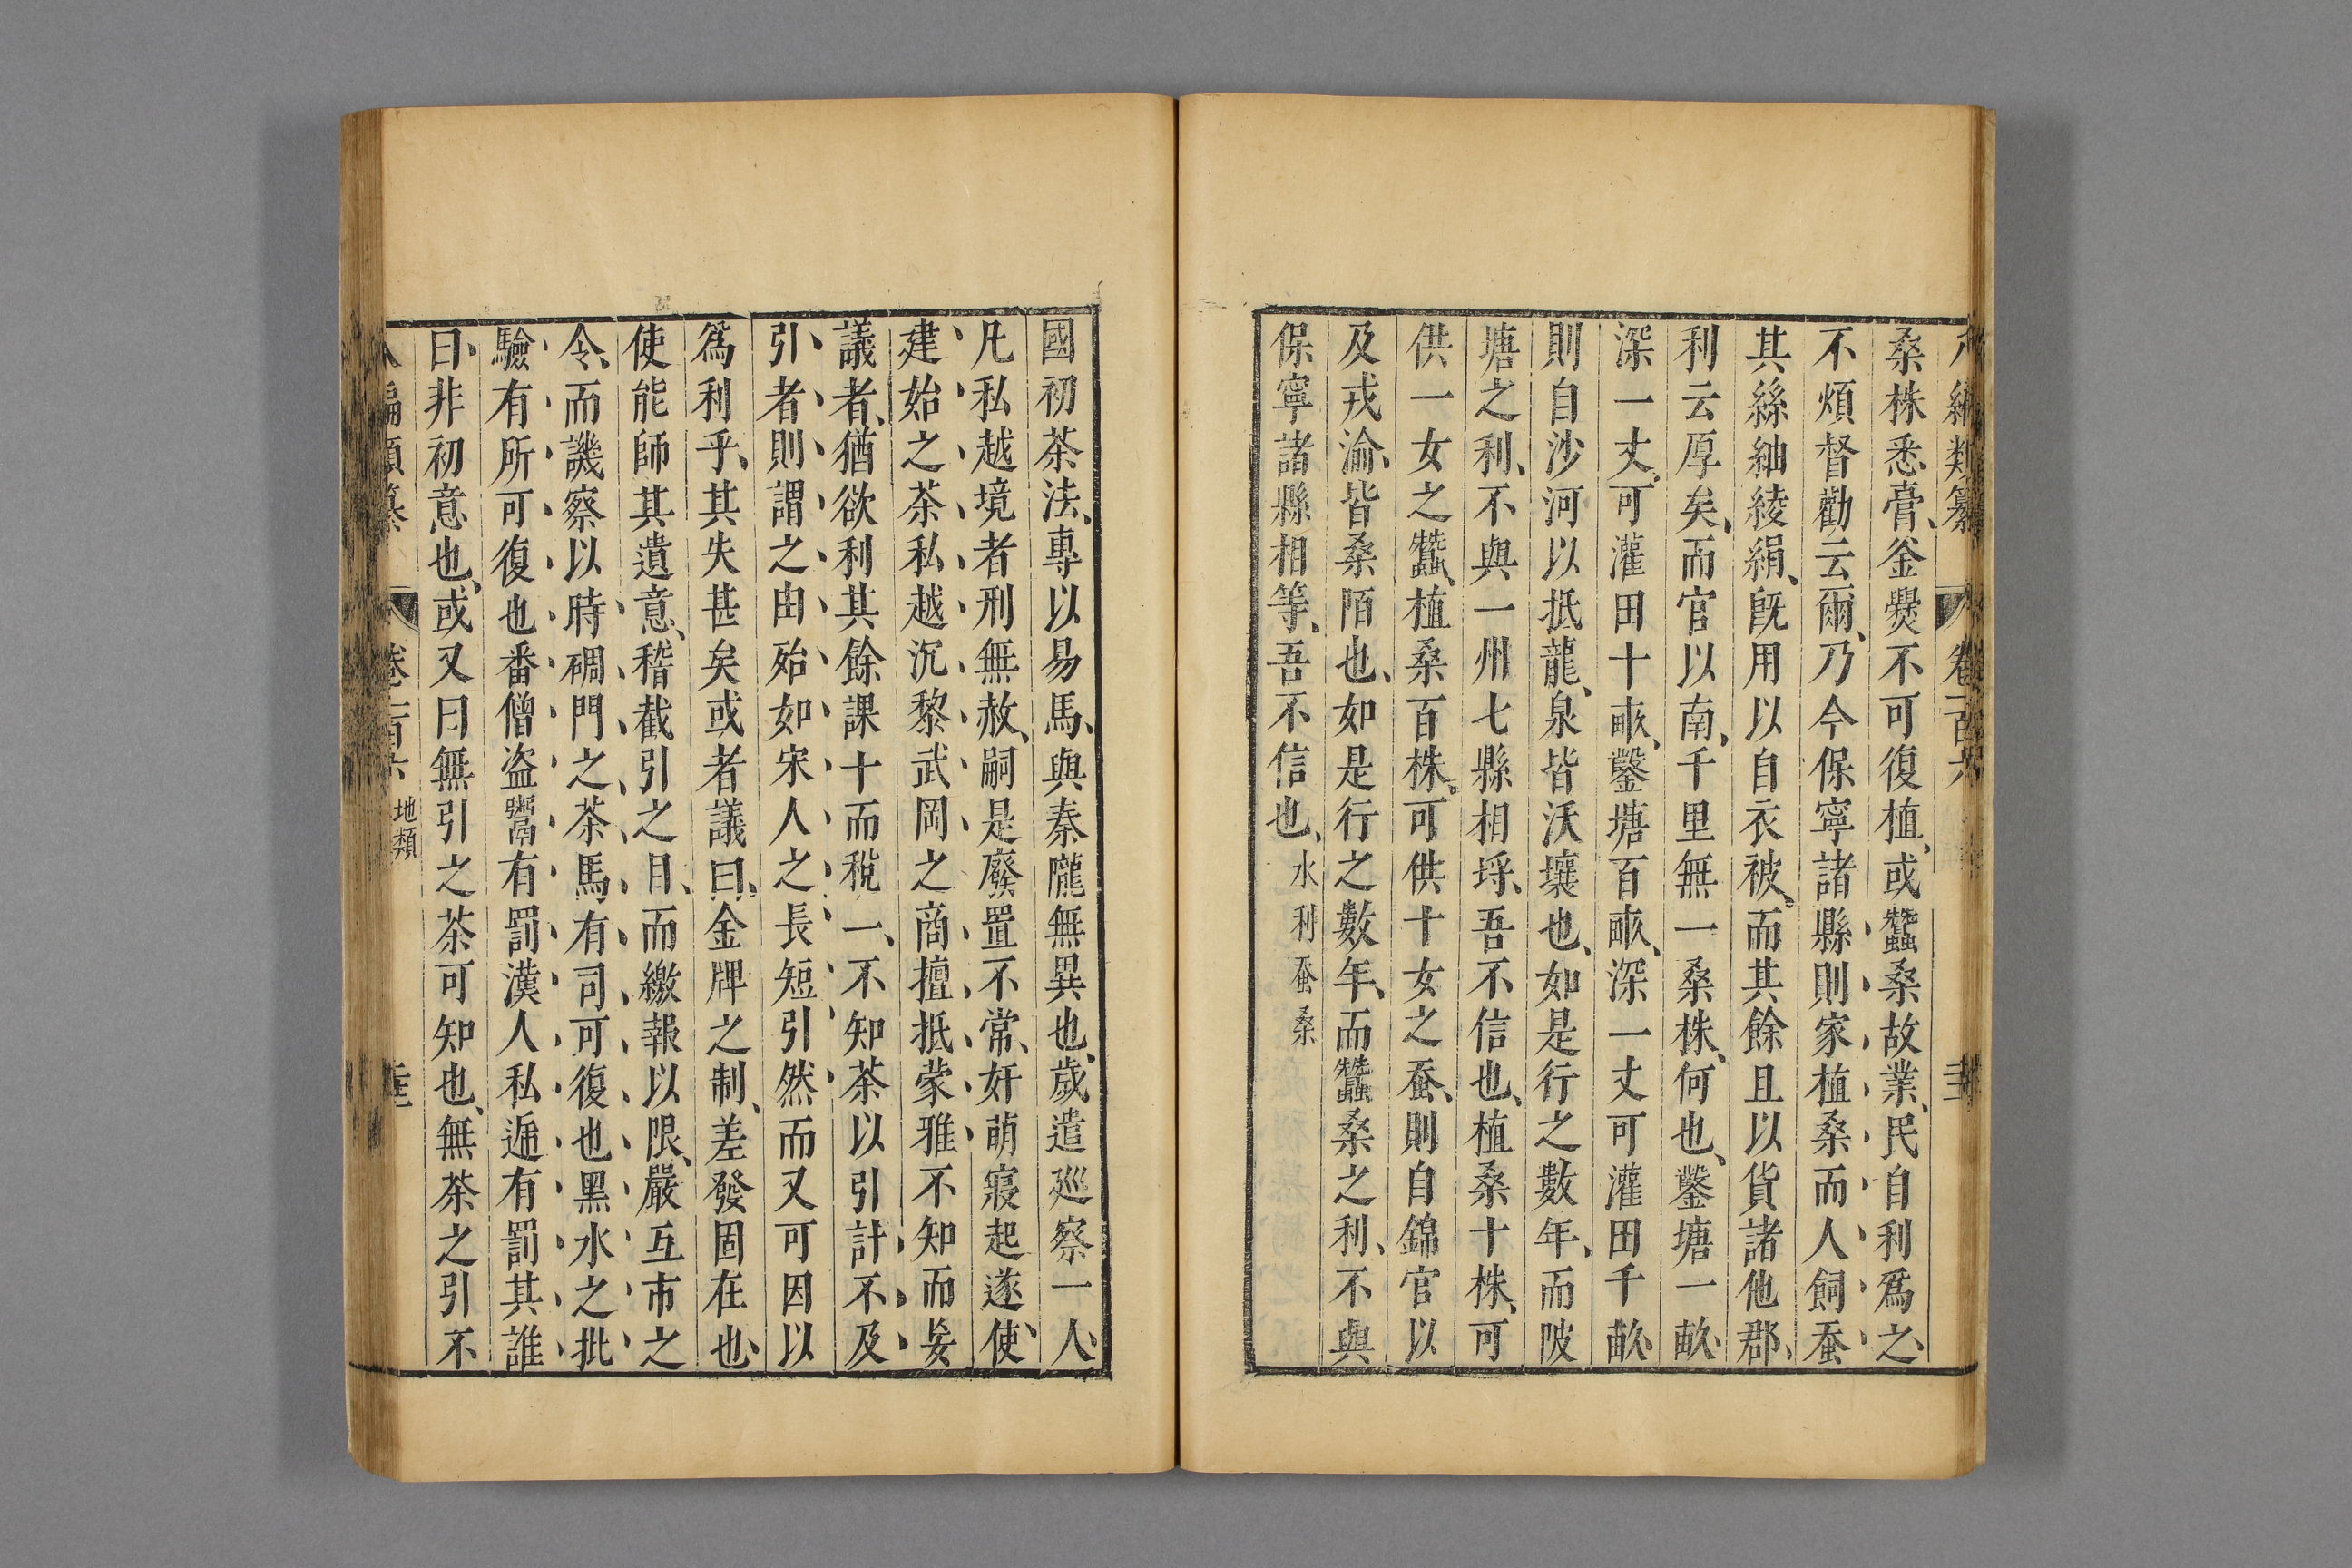 八編類纂 卷一百六
桑株悉膏釡爨不可復植或蠶桑故業民自利爲之
不煩督勸云爾乃今保寧諸縣則家植桑而人飼蚕
其絲紬綾絹旣用以自衣被而其餘且以貨諸他郡
利云厚矣而官以南千里無一桑株何也鑿塘一畝
深一丈可灌田十畝鑿塘百畝深一丈可灌田千畝
則自沙河以抵龍泉皆沃壤也如是行之數年而陂
塘之利不與一州七縣相埒吾不信也植桑十株可
供一女之蠶植桑百株可供十女之蚕則自錦官以
及戎渝皆桑陌也如是行之數年而蠶桑之利不與
保寧諸縣相等吾不信也 水利蚕桑
國初茶法專以易馬與秦隴無異也歲遣廵察一人
凡私越境者刑無赦嗣是廢置不常奸萌寢起遂使
建始之茶私越沉黎武岡之商擅抵蒙雅不知而妄
議者猶欲利其餘課十而稅一不知茶以引計不及
引者則謂之由殆如宋人之長短引然而又可因以
爲利乎其失甚矣或者議曰金牌之制差發固在也
使能師其遺意稽截引之目而繳報以限嚴互市之
令而譏察以時碉門之茶馬有司可復也黑水之批
驗有所可復也番僧盜鬻有罰漢人私逓有罰其誰
曰非初意也或又曰無引之茶可知也無茶之引不
八編類纂 卷一百六 地類